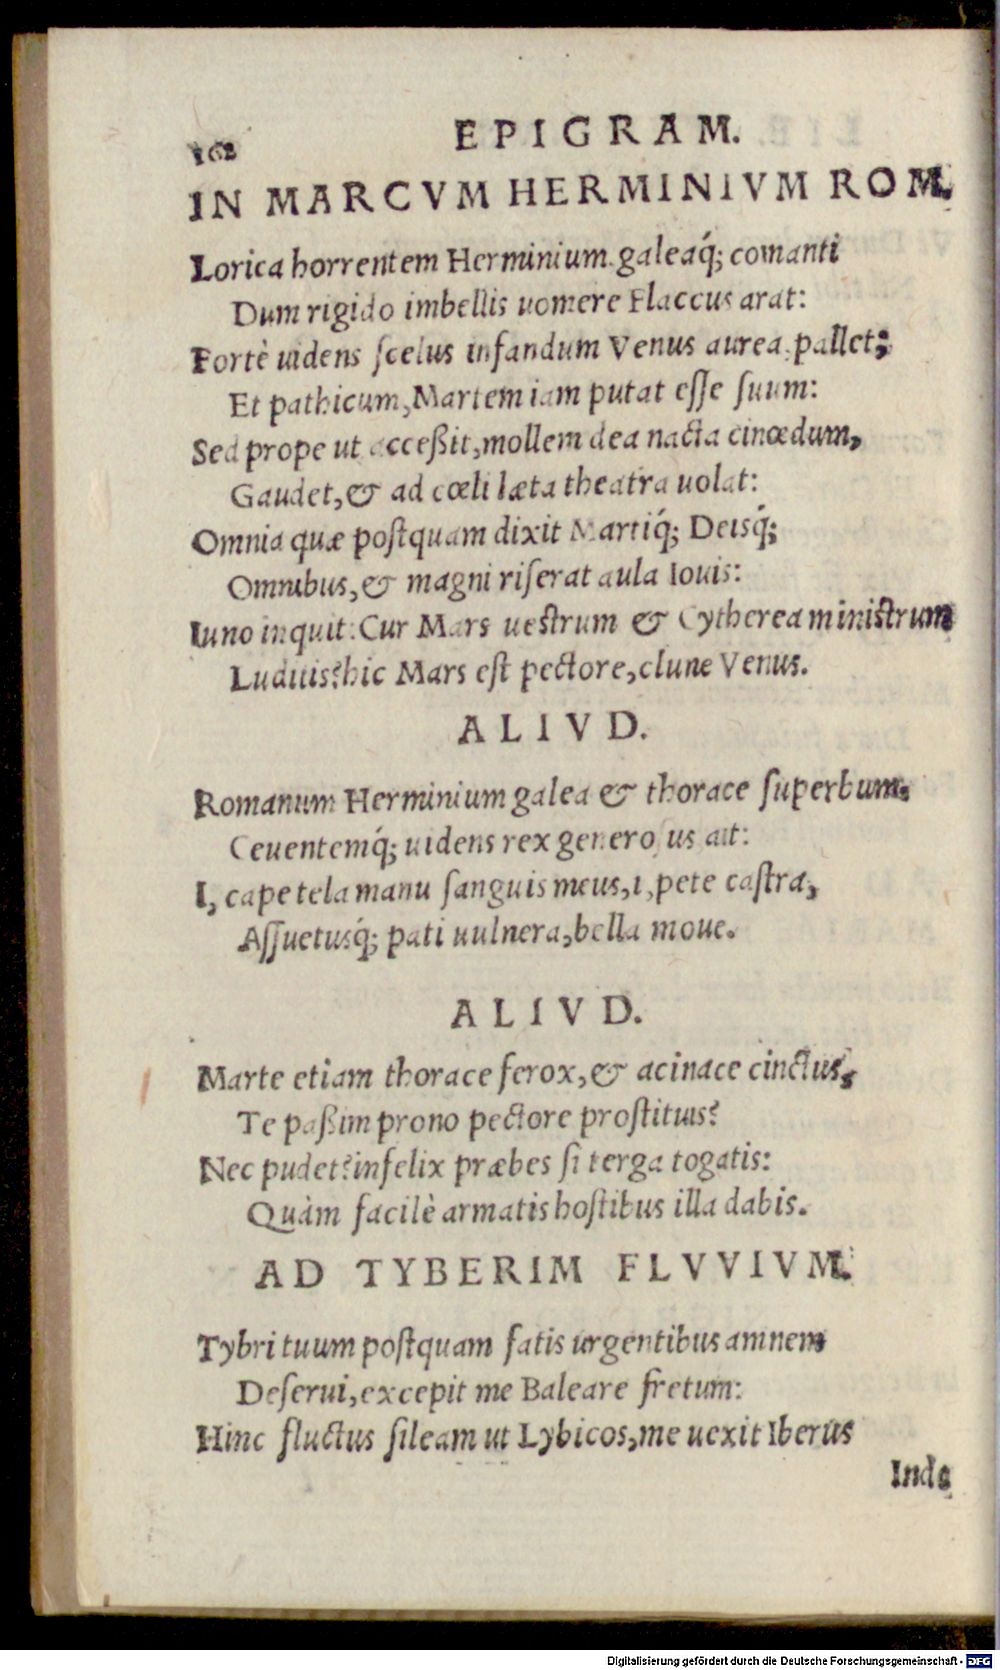 162
EPIGRAM.
IN MARCVM HERMINIVM ROM.
Lorica horrentem Herminium galeaq́; comanti
Dum rigido imbellis uomere Flaccus arat:
Fortè uidens scelus infandum Venus aurea pallet;
Et pathicum, Martem iam putat esse suum:
Sed prope ut acceßit, mollem dea nacta cinœdum,
Gaudet, & ad cœli læta theatra uolat:
Omnia quæ postquam dixit Martiq́; Deisq́;
Omnibus, & magni riserat aula Iouis:
Iuno inquit: Cur Mars uestrum & Cytherea ministrum
Luditis? hic Mars est pectore, clune Venus.
ALIVD.
Romanum Herminium galea & thorace superbum.
Ceuentemq́; uidens rex generosus ait:
I, cape tela manu sanguis meus, i, pete castra,
Assuetusq́; pati uulnera, bella moue.
ALIVD.
Marte etiam thorace ferox, & acinace cinctus,
Te paßim prono pectore prostituis?
Nec pudet? infelix præbes si terga togatis:
Quàm facilè armatis hostibus illa dabis.
AD TYBERIM FLVVIVM.
Tybri tuum postquam fatis urgentibus amnem
Deserui, excepit me Baleare fretum:
Hinc fluctus sileam ut Lybicos, me uexit Iberus
Inde
Digitalisierung gefördert durch die Deutsche Forschungsgemeinschaft - DFG